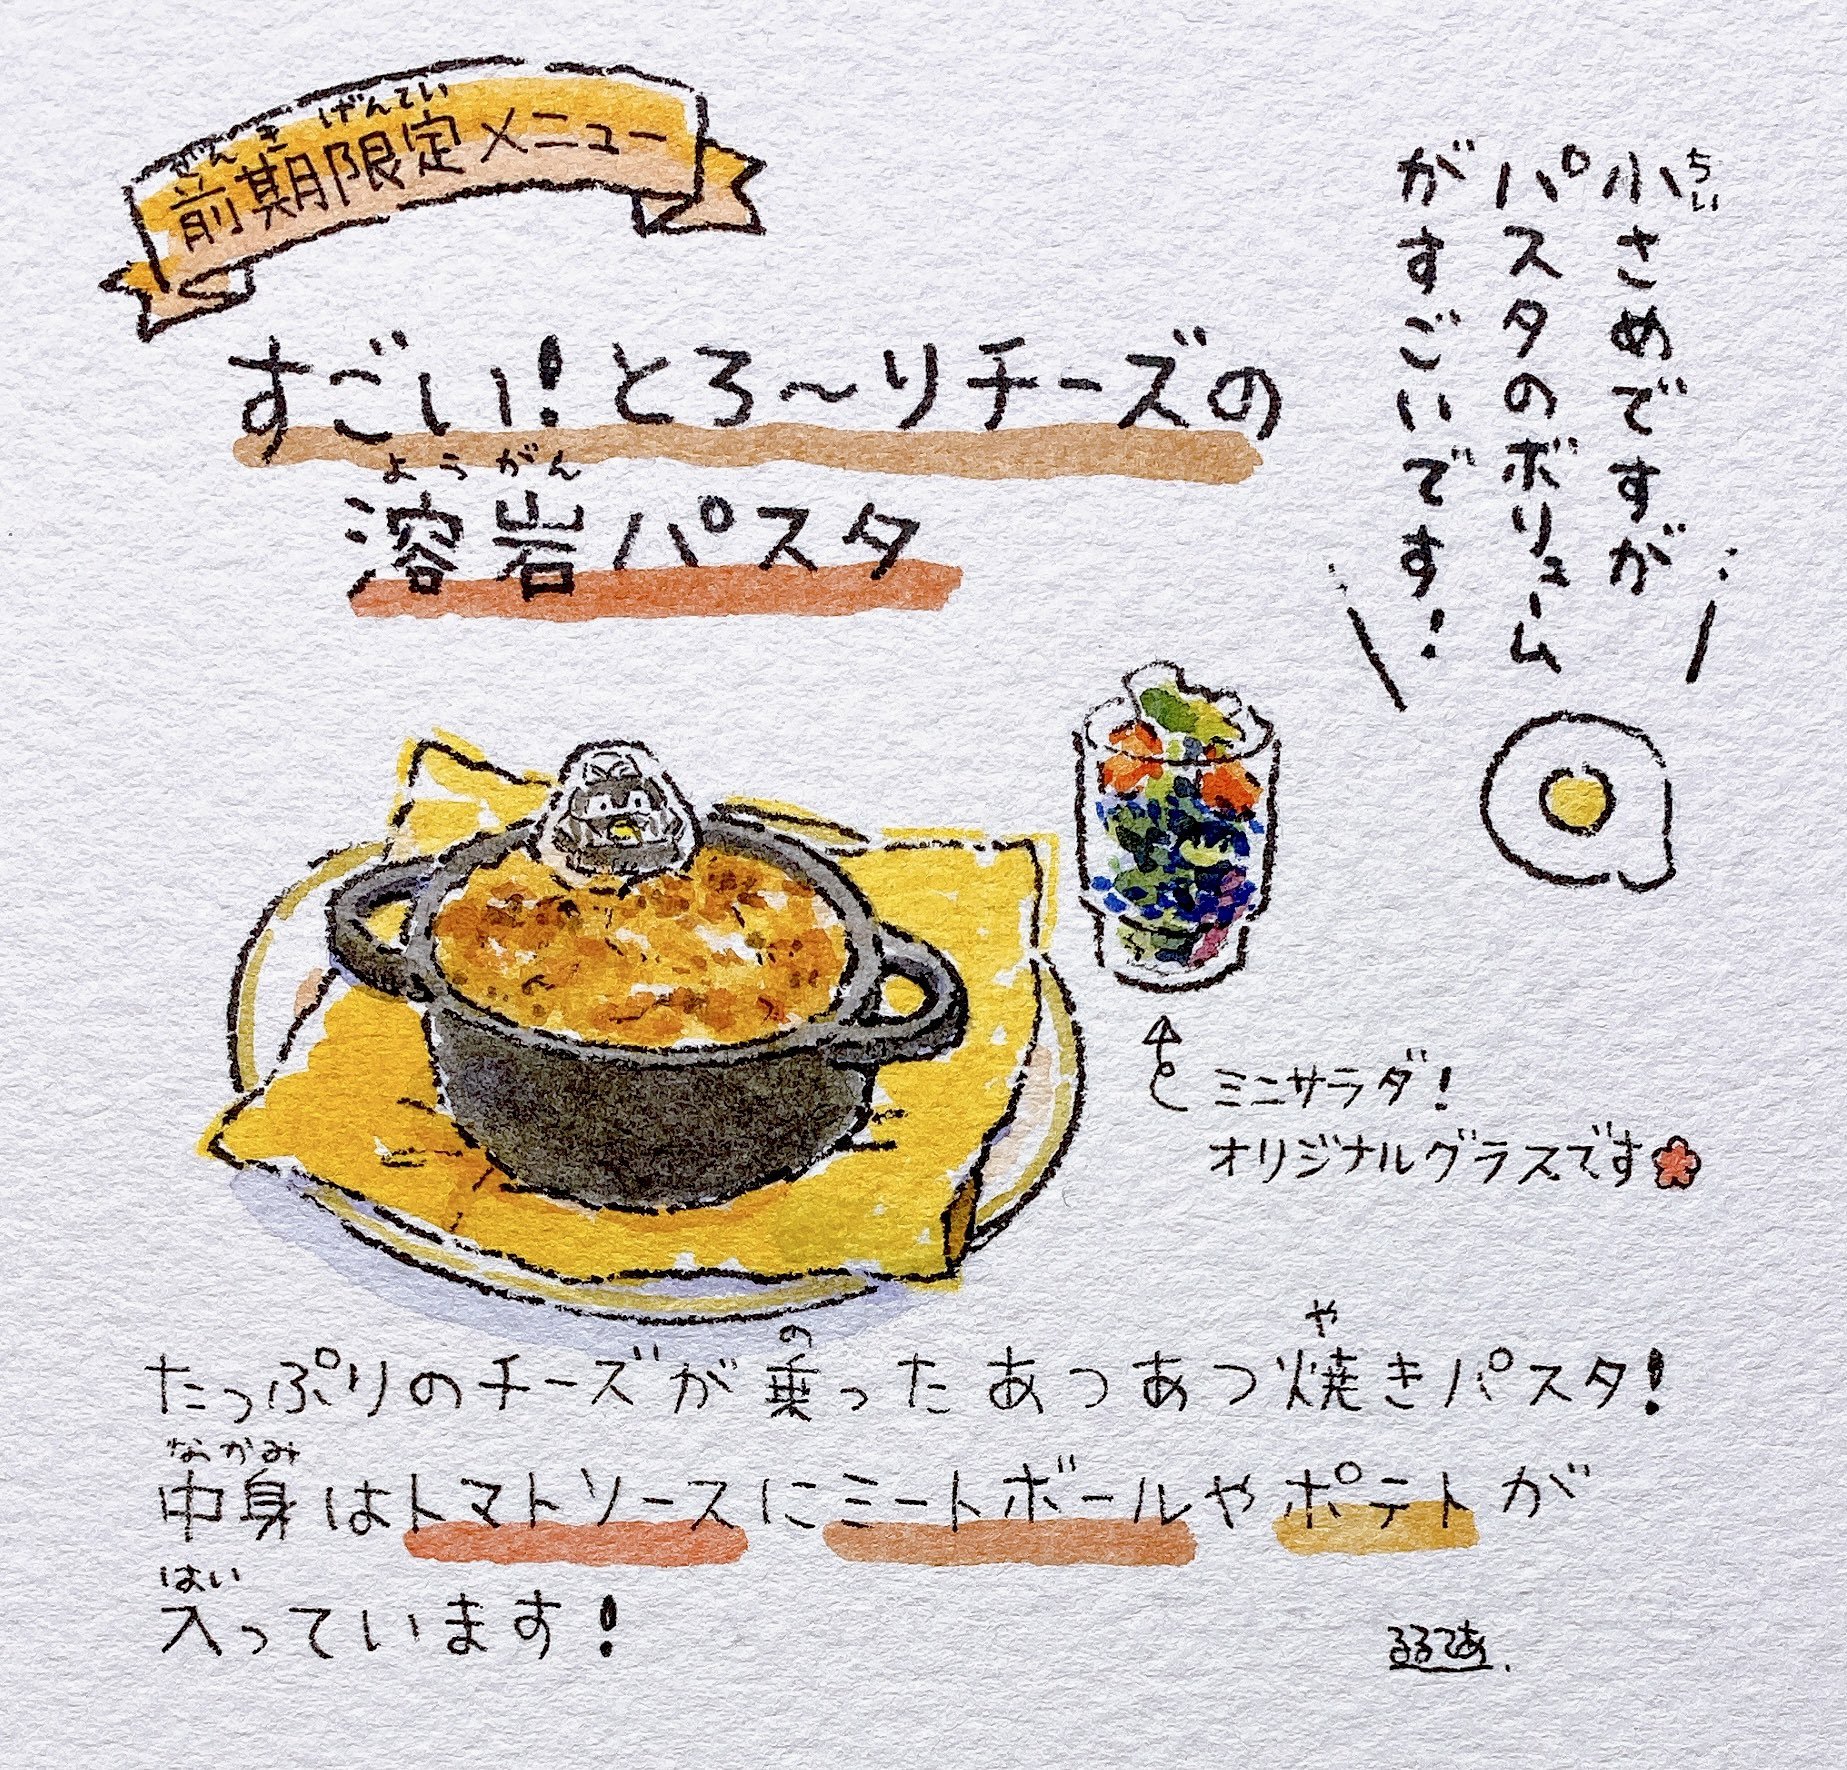 前期限定メニュー
ぜんき げんてい
すごい!とろ〜りチーズの
ようがん
溶岩パスタ
小さめですが
ちい
パスタのボリューム
がすごいです!
ミニサラダ!
オリジナルグラスです
の
や
たっぷりのチーズが乗ったあつあつ焼きパスタ!
なかみ
中身はトマトソースにミートボールやポテトが
はい
入っています!
るるてあ.